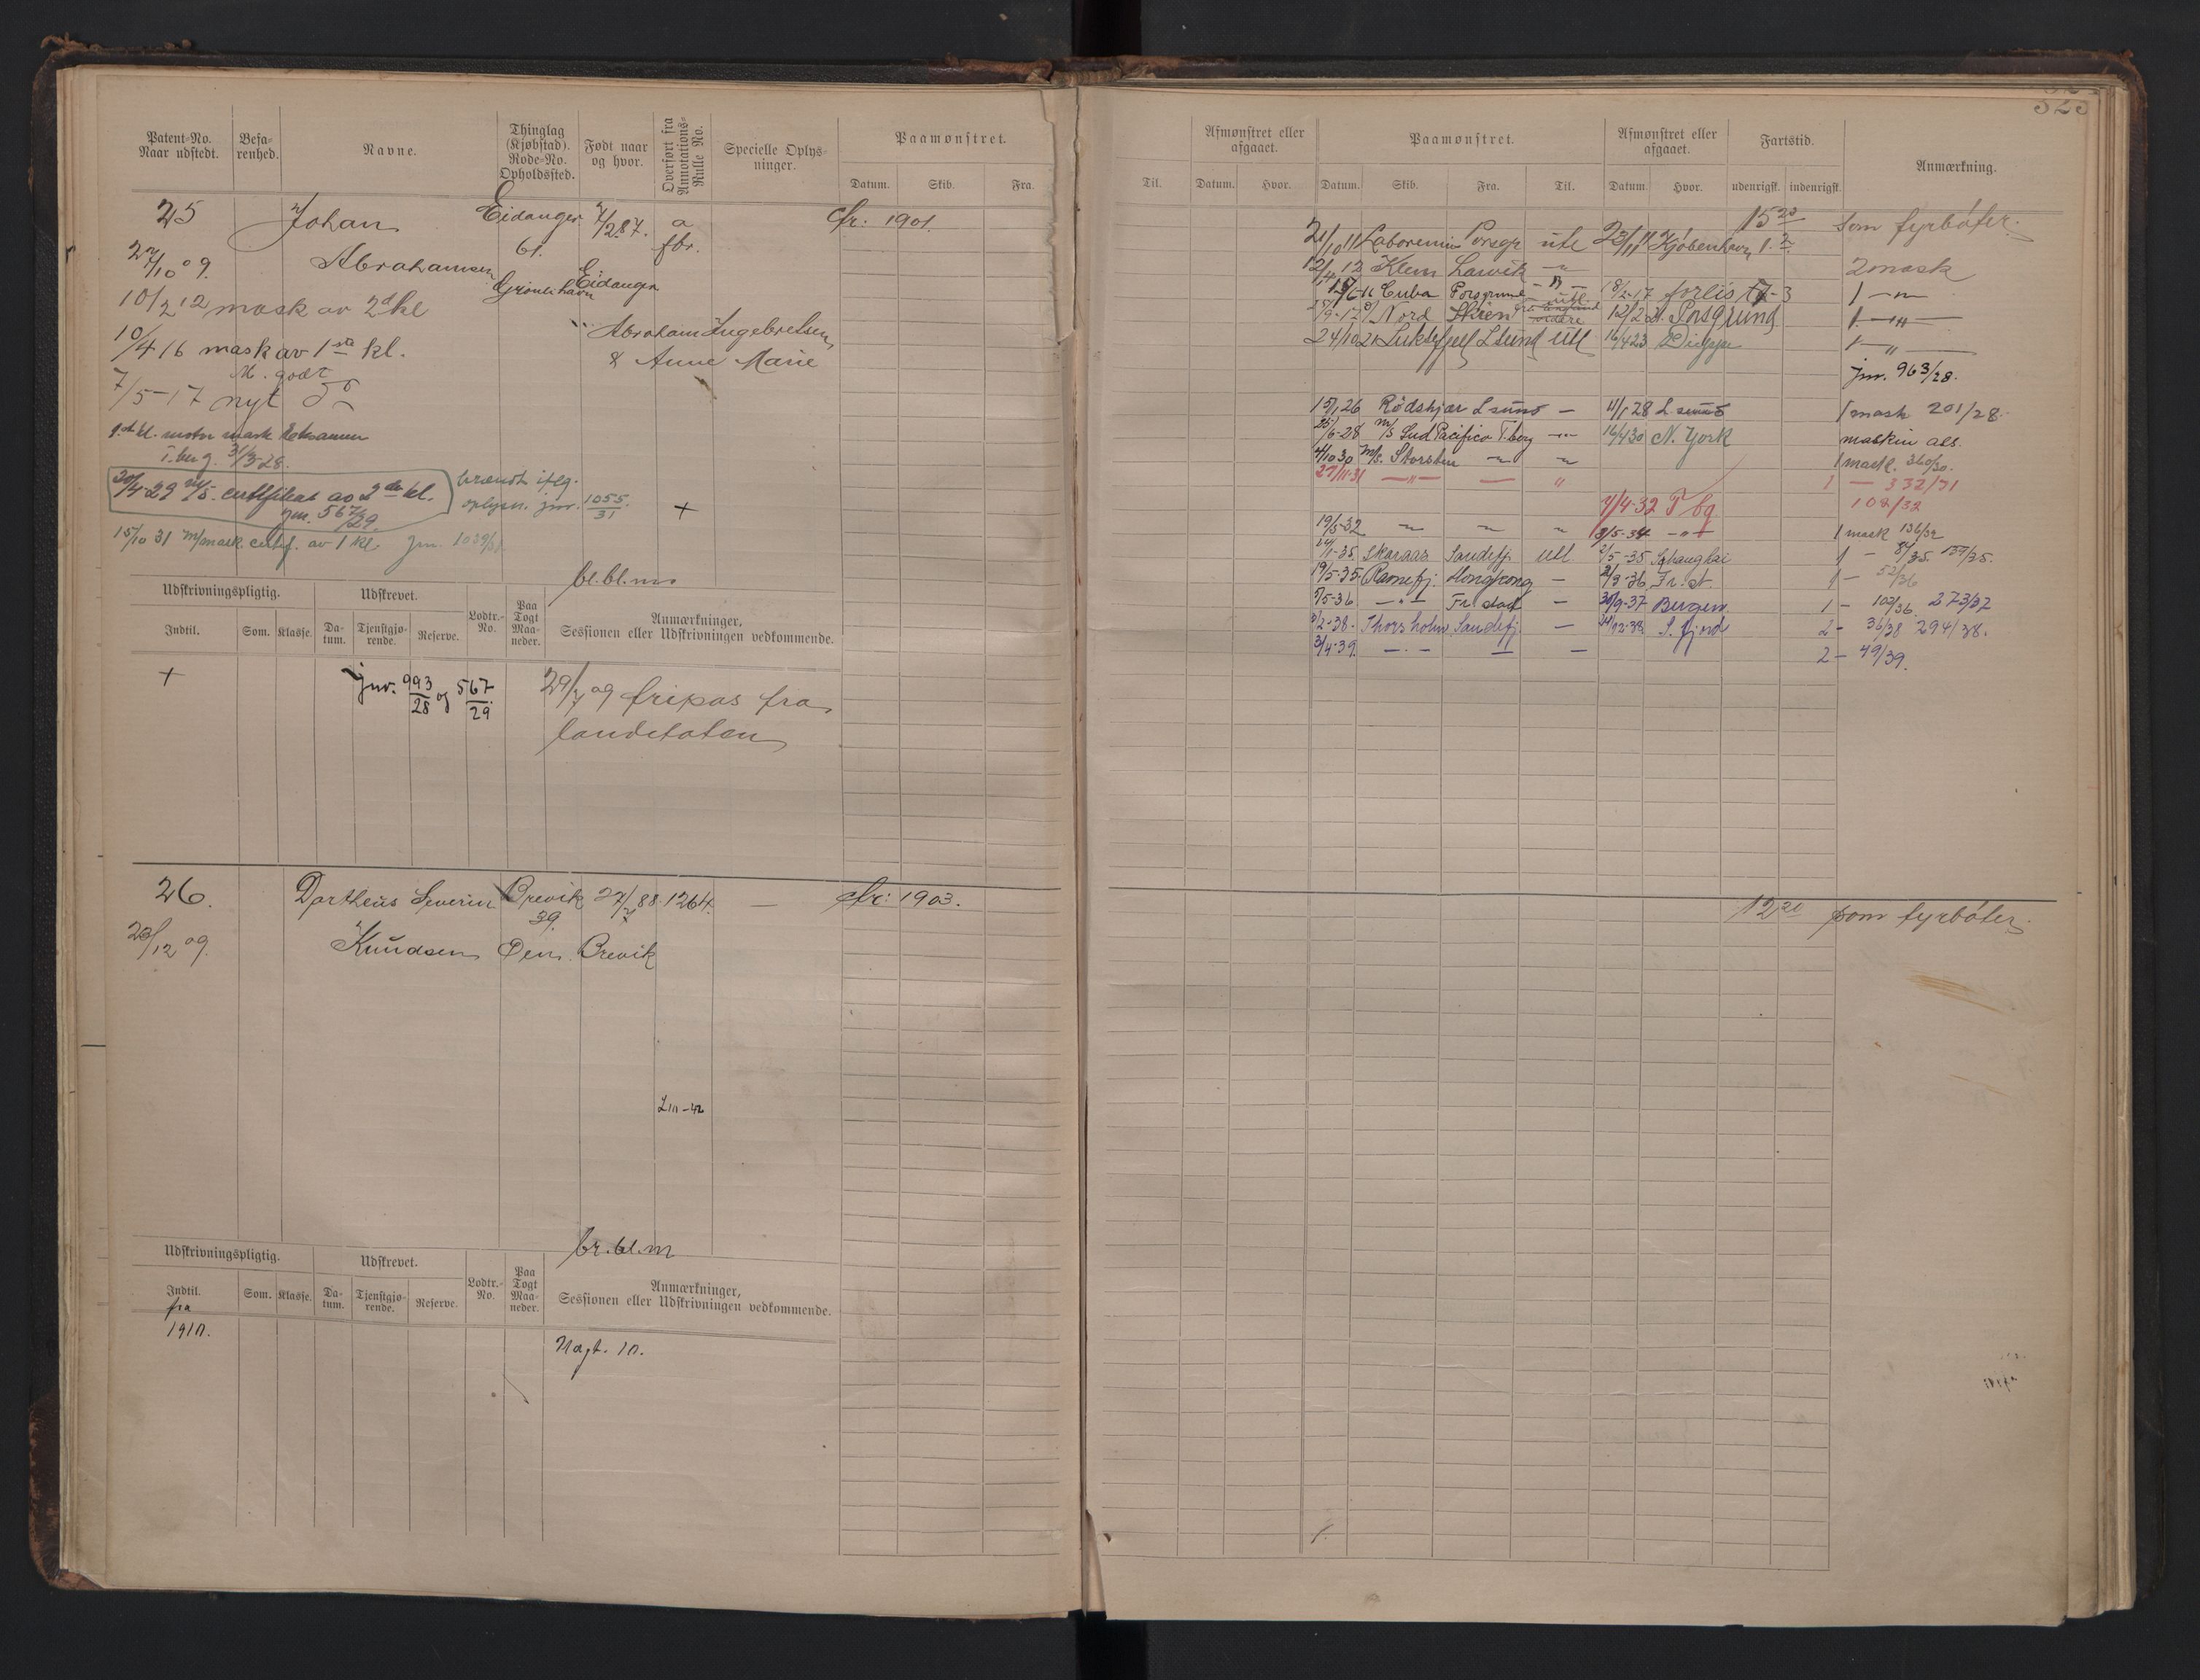 Patent-No. Naar udstedt. Befarenhed. Navne. Thinglag (Kjøbstad). Rode-No. Opholdssted. Født naar og hvor. Overført fra Annotations-Rulle No. Specielle Oplysninger. Paamønstret.
Datum. Skib. Fra.
25 Johan Eidanger 287. a cfr: 1901.
61. fbr.
Abrahamsen Eidanger
10/2 12 mask av 2d kl
Abraham Ingebretsen
10/4 16 mask av 1ste kl. & Anne Marie
7/5-17 nyt
1st kl. motor mask eksamen
T.berg. 31/3-28.
30/4-29 certifikat av 2 de kl. brændt iflg.
jnr. 567/29. oplysn. jnr. 1055/31 +
15/10 31 m/mask. certif. av 1 kl. jnr. 1039/31
bl.bl.m
Udskrivningspligtig. Udskrevet. Lodtr.-No. Paa Togt Maaneder. Anmærkninger, Sessionen eller Udskrivningen vedkommende.
Indtil. Som. Klasse. Datum. Tjenstgjørende. Reserve.
+ jnr. 993/28 og 567/29 29/7 09 fripas fra
landetaten
26. Dortheus Severin Brevik 27/7 88 1264. — cfr: 1903.
39.
23/12 09. Knudsen Øen. Brevik
br.bl.m
Udskrivningspligtig. Udskrevet. Lodtr.-No. Paa Togt Maaneder. Anmærkninger, Sessionen eller Udskrivningen vedkommende.
Indtil. Som. Klasse. Datum. Tjenstgjørende. Reserve.
fra
1910.
325
Afmønstret eller afgaaet. Paamønstret. Afmønstret eller afgaaet. Fartstid. Anmærkning.
Til. Datum. Hvor. Datum. Skib. Fra. Til. Datum. Hvor. udenrigsk. indenrigsk.
15 som fyrbøter.
21/10 11 Laboremus Porsgr utl 23/11 11 Kjøbenhavn
12/4 12 Klem Larvik 2 mask
Cuba Porsgrund 18/2-17 forlis
Nord Skien Porsgrund
24/10 21 Luksefjell L sund utl 16/4 23 Dieppe
jnr. 963/28.
15/1 26 Rødskjær L sund — 11/1 28 L sund 1 mask 201/28.
25/6-28 m/s Sud Pacifico T.berg 16/4 30 N. York maskin ass.
4/10 30 m/s. Storsten 1 mask. 360/30.
27/11-31 —"— — " 1 — 332/31
7/4-32 T bg 108/32
19/5-32 3/5-34 1 mask 136/32
Skaraas Sandefj. utl. 2/5-35 Schanghai 1 —
19/5-35. Ramsfj. Hongkong — Fr. st. 1 — 52/36
5/5-36 Fr. stad — 30/9-37 Bergen 1 — 102/36. 273/37
Thorsholm Sandefj. — S. fjord 2 — 36/38 294/38.
3/4-39. — . — — — 2 — 49/39.
12 som fyrbøter.